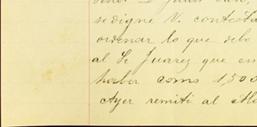 se digne V. contesta
ordenar lo que debo
al Sr Juarez que en
haber como 1,500
Ayer remití al